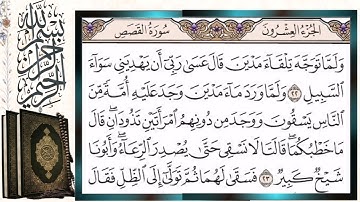 الجُزْءُ العِشْرُونَ سُورَةُ القَصَصِ
وَلَمَّا تَوَجَّهَ تِلْقَآءَ مَدْيَنَ قَالَ عَسَىٰ رَبِّىٓ أَن يَهْدِيَنِى سَوَآءَ
ٱلسَّبِيلِ ٢٢ وَلَمَّا وَرَدَ مَآءَ مَدْيَنَ وَجَدَ عَلَيْهِ أُمَّةً مِّنَ
ٱلنَّاسِ يَسْقُونَ وَوَجَدَ مِن دُونِهِمُ ٱمْرَأَتَيْنِ تَذُودَانِ ۖ قَالَ
مَا خَطْبُكُمَا ۖ قَالَتَا لَا نَسْقِى حَتَّىٰ يُصْدِرَ ٱلرِّعَآءُ ۖ وَأَبُونَا
شَيْخٌ كَبِيرٌ ٢٣ فَسَقَىٰ لَهُمَا ثُمَّ تَوَلَّىٰٓ إِلَى ٱلظِّلِّ فَقَالَ
بسم الله الرحمن الرحيم